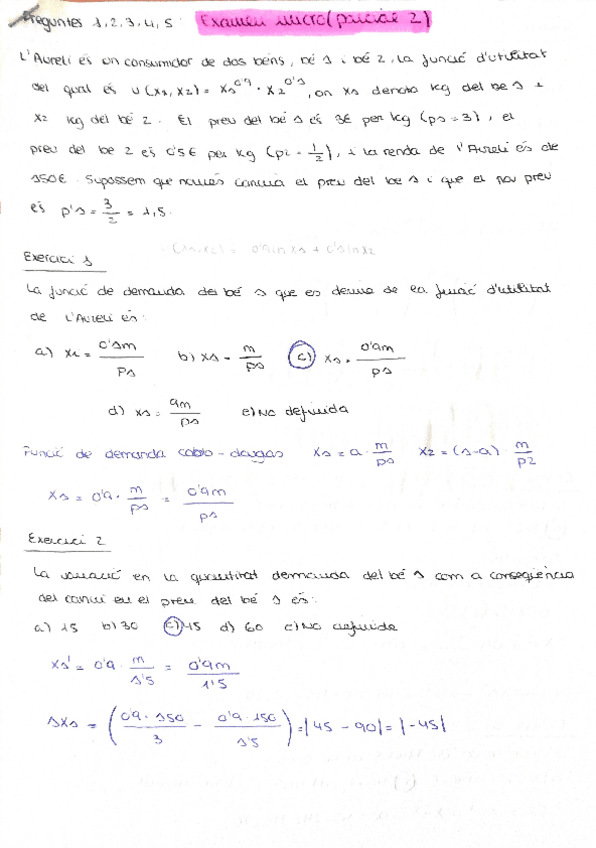 Preguntes 1, 2, 3, 4, 5: Examen micro (parcial 2)
L'Aureli és un consumidor de dos béns, bé 1 i bé 2, la funció d'utilitat
del qual és u(x1, x2) = x1^0'9 · x2^0'1, on x1 denota kg del bé 1 i
x2 kg del bé 2. El preu del bé 1 és 3€ per kg (p1 = 3), el
preu del bé 2 és 0'5€ per kg (p2 = 1/2), i la renda de l'Aureli és de
150€. Suposem que només canvia el preu del bé 1 i que el nou preu
és p'1 = 3/2 = 1,5.
u(x1,x2) = 0'9 ln x1 + 0'1 ln x2
Exercici 1
La funció de demanda del bé 1 que es deriva de la funció d'utilitat
de l'Aureli és:
a) x1 = 0'1m/p1 b) x1 = m/p1 c) x1 = 0'9m/p1
d) x1 = 9m/p1 e) No definida
Funció de demanda cobb-douglas x1 = a · m/p1 x2 = (1-a) · m/p2
x1 = 0'9 · m/p1 = 0'9m/p1
Exercici 2
La variació en la quantitat demanda del bé 1 com a conseqüència
del canvi en el preu del bé 1 és:
a) 15 b) 30 c) 45 d) 60 e) No definida
x1' = 0'9 · m/1'5 = 0'9m/1'5
Δx1 = (0'9 · 150/3 − 0'9 · 150/1'5) = |45 − 90| = |−45|